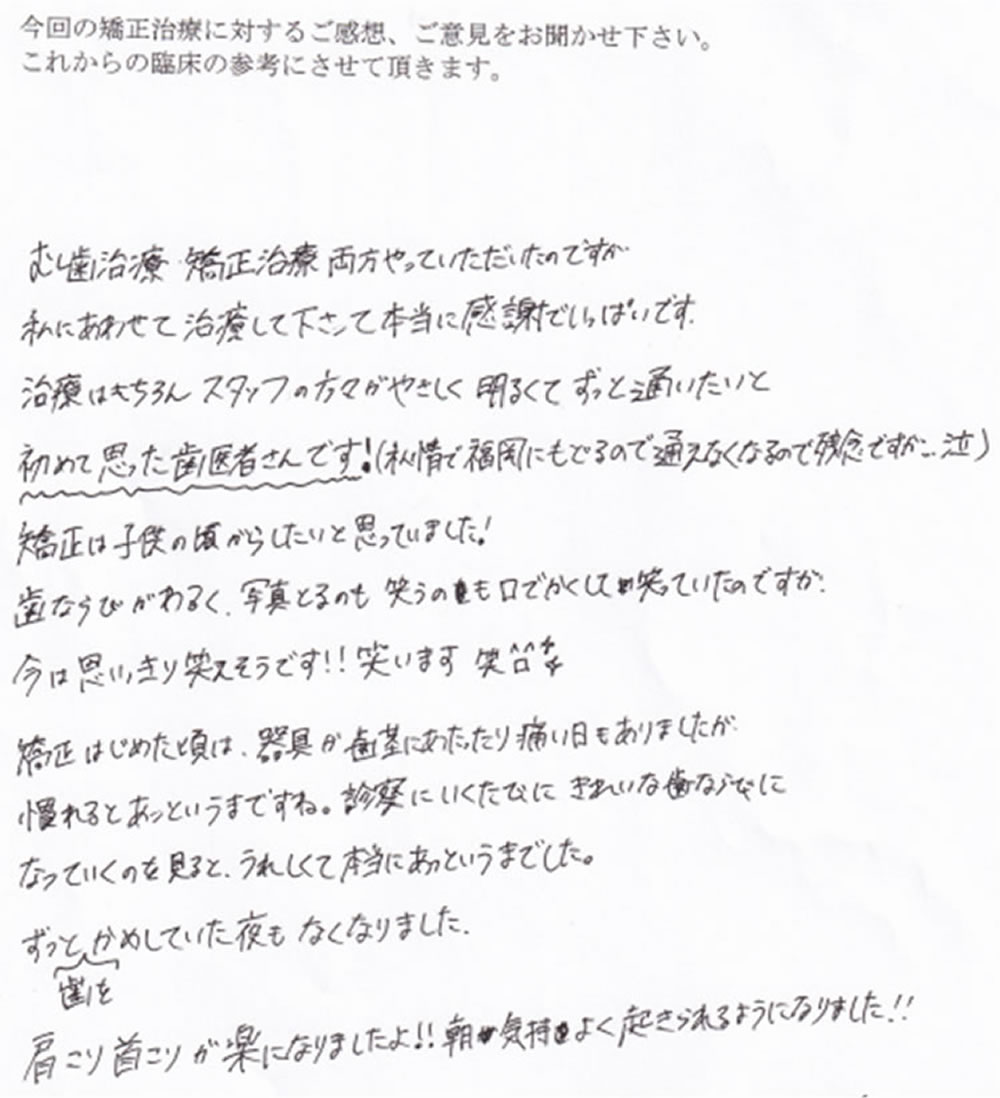 今回の矯正治療に対するご感想、ご意見をお聞かせ下さい。
これからの臨床の参考にさせて頂きます。
むし歯治療・矯正治療両方やっていただいたのですが
私にあわせて治療して下さって本当に感謝でいっぱいです。
治療はもちろんスタッフの方々がやさしく明るくてずっと通いたいと
初めて思った歯医者さんです!(私情で福岡にもどるので通えなくなるので残念ですが…泣)
矯正は子供の頃からしたいと思っていました!
歯ならびがわるく、写真とるのも笑うのも口でかくして笑っていたのですが、
今は思いっきり笑えそうです!!笑います 笑
矯正はじめた頃は、器具が歯茎にあたったり痛い日もありましたが
慣れるとあっというまですね。診察にいくたびにきれいな歯ならびに
なっていくのを見ると、うれしくて本当にあっというまでした。
ずっとかめしていた夜もなくなりました。
歯を
肩こり首こりが楽になりましたよ!!朝気持よく起きられるようになりました!!